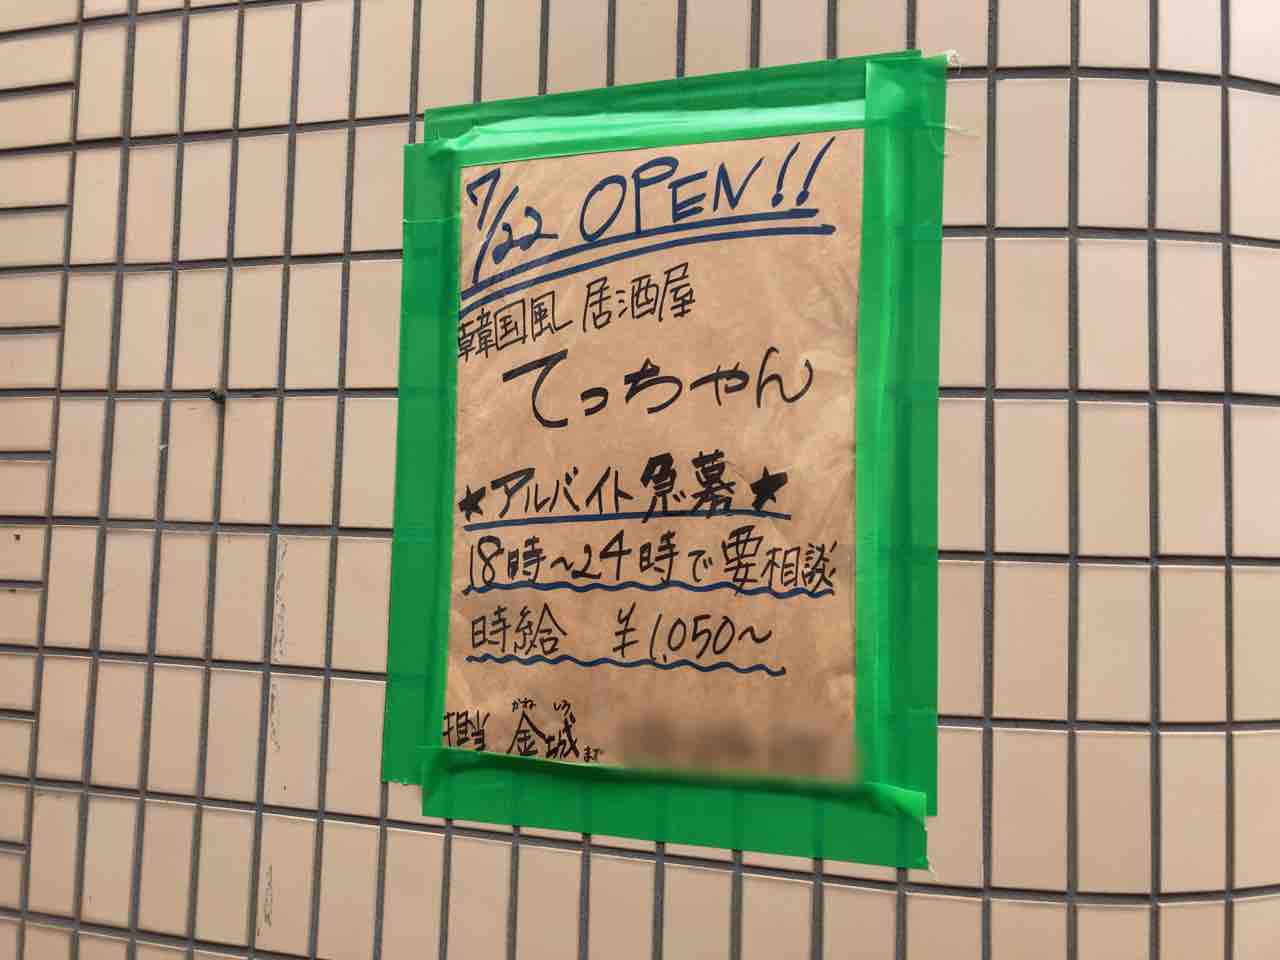 7/22 OPEN!!
韓国風 居酒屋
てっちゃん
★アルバイト急募★
18時～24時で要相談
時給 ¥1,050～
かね しろ
担当 金城まで